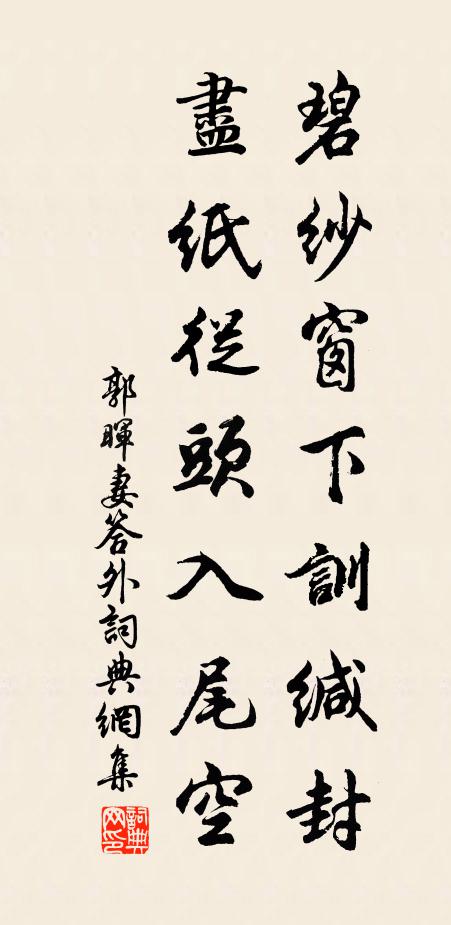 碧紗窗下訓緘封
盡紙從頭入尾空
郭暉妻答外詞典網集
詞典网印